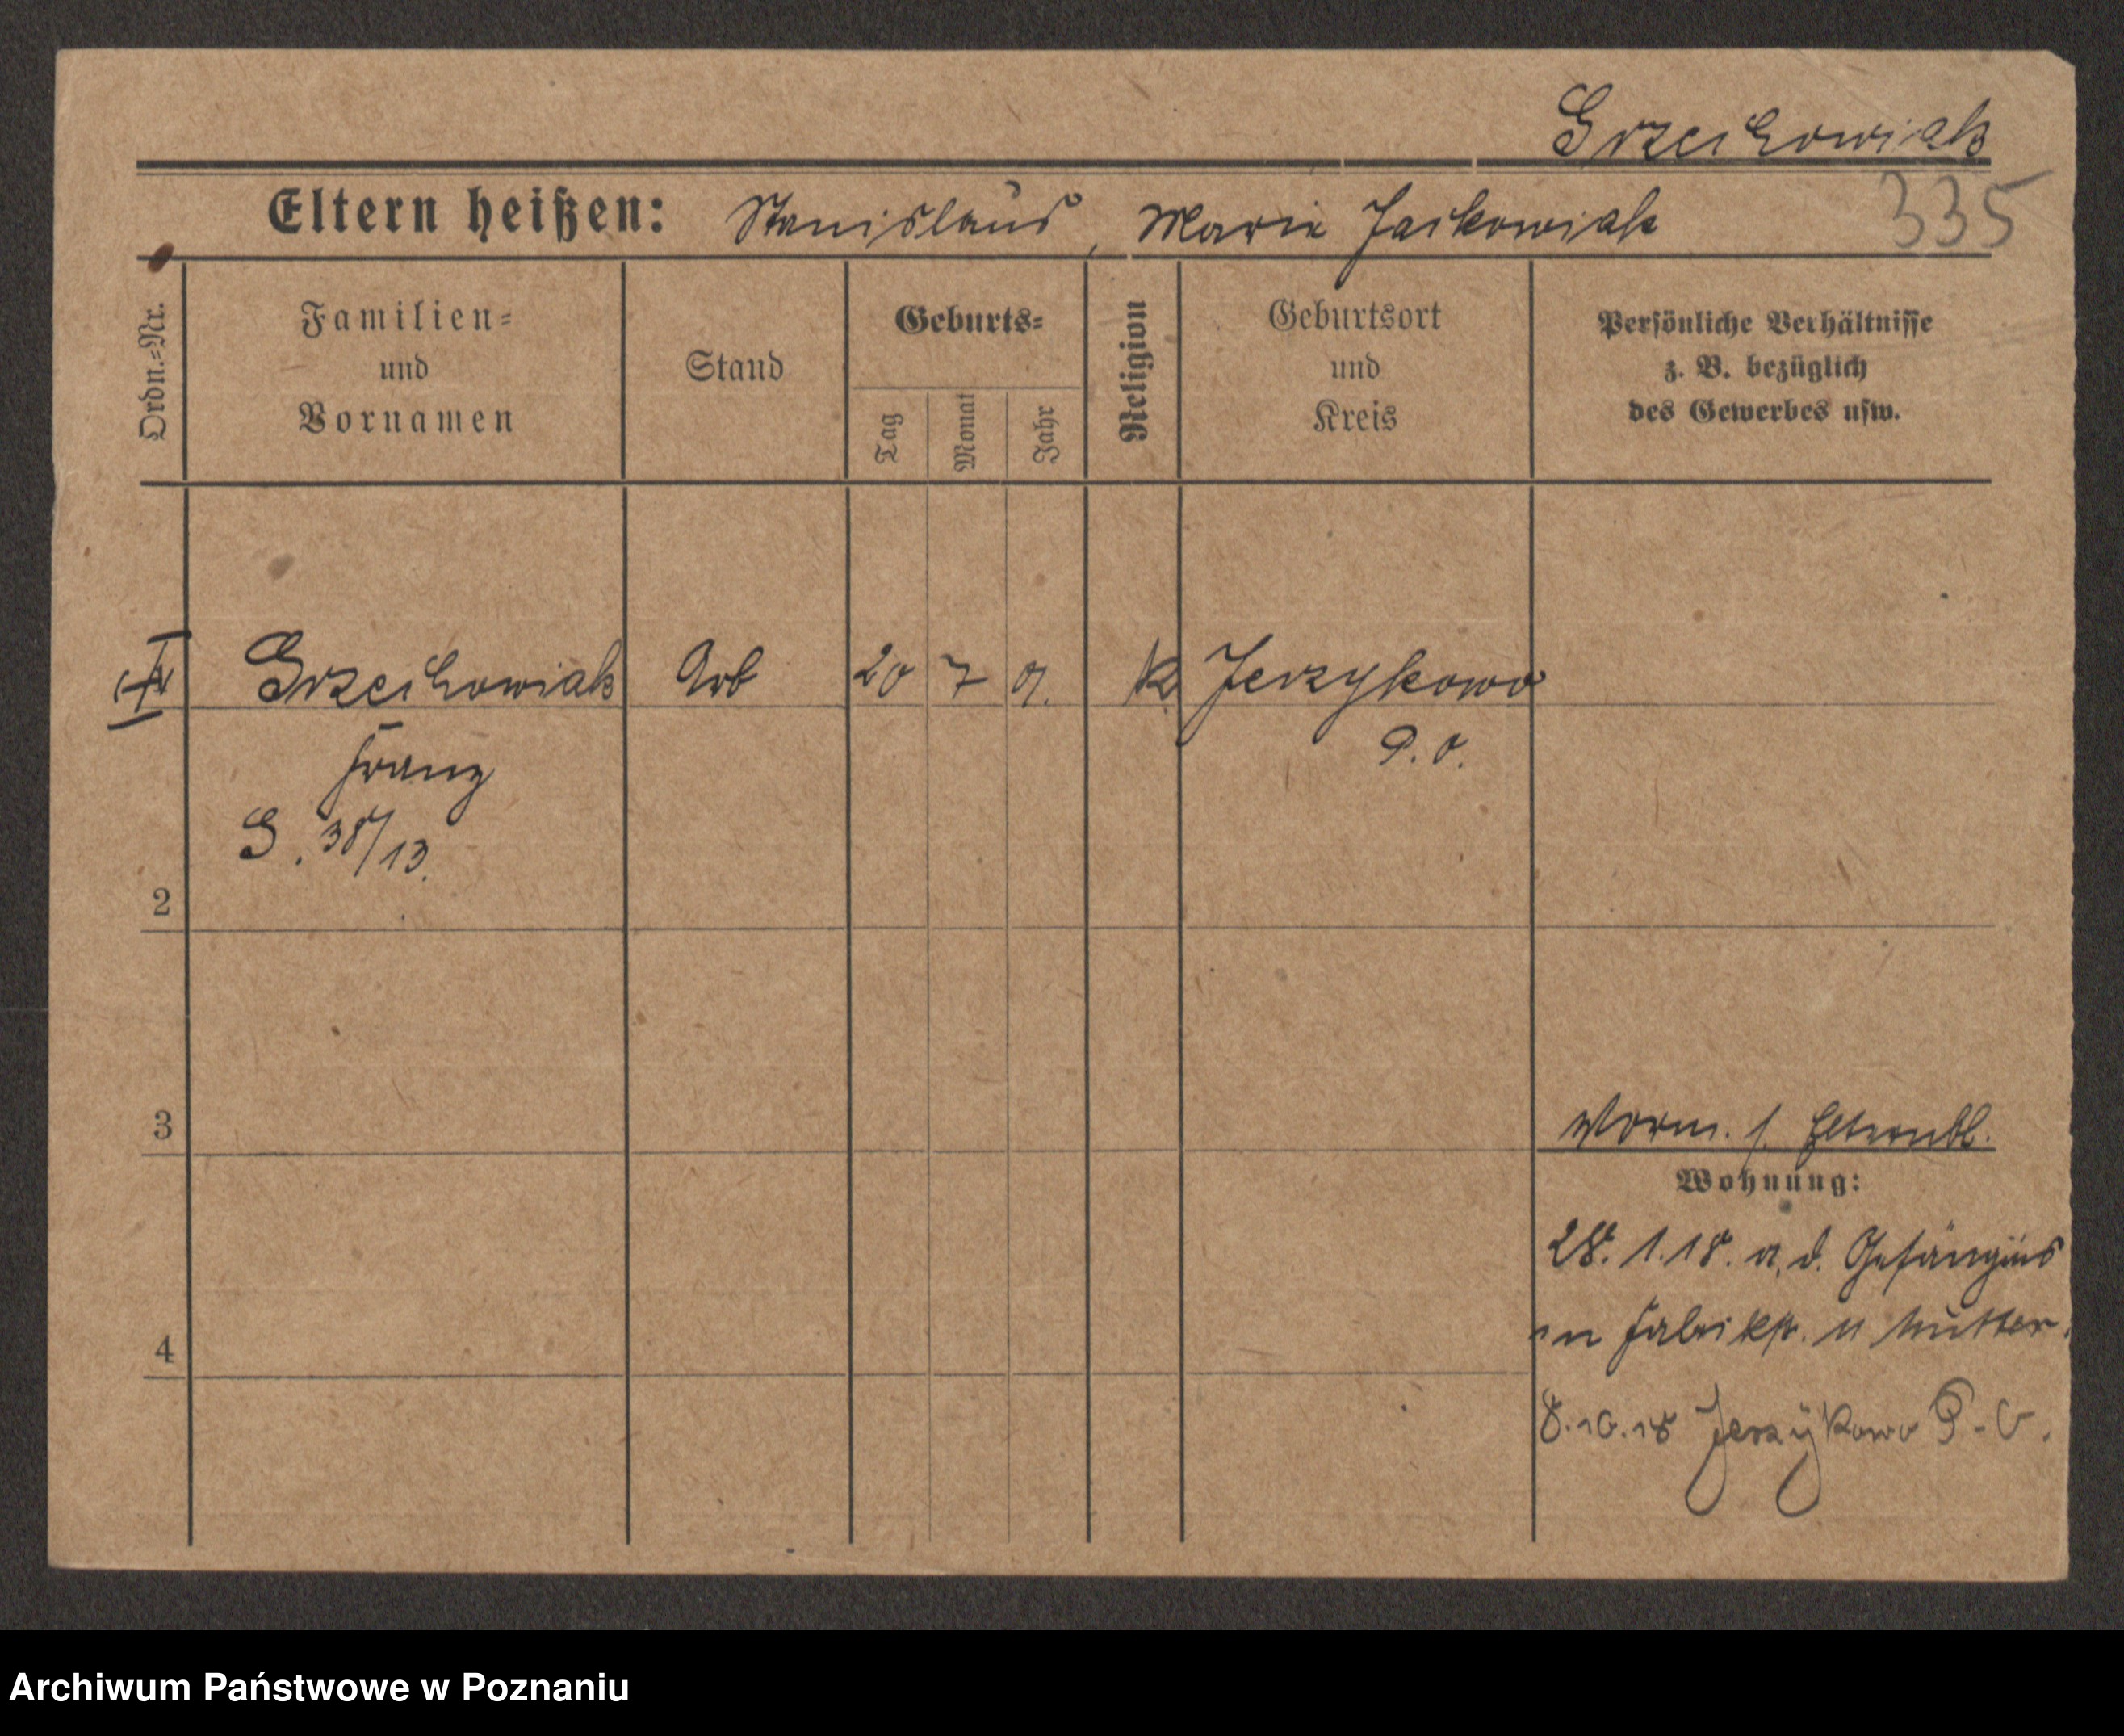 Grzeskowiak
335
Eltern heißen: Stanislaus, Marie Jaskowiak
Ordn.=Nr.
Familien=
und
Vornamen
Stand
Geburts=
Tag
Monat
Jahr
Religion
Geburtsort
und
Kreis
Persönliche Verhältnisse
z. B. bezüglich
des Gewerbes usw.
Grzeskowiak Arb 20 7 k Jerzykowo
Franz P. O.
S. 38/13.
2
3
Worm. s. Elternbl.
Wohnung:
28. 1. 18. a. d. Gefängnis
in Fabrikst. 11 Mutter.
4
8.10.18 Jerzykowo P-O.
Archiwum Państwowe w Poznaniu